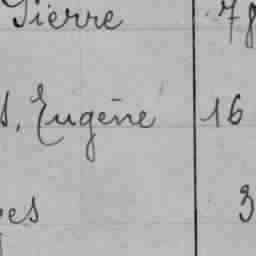 Pierre 78
t, Eugène 16
ges 3